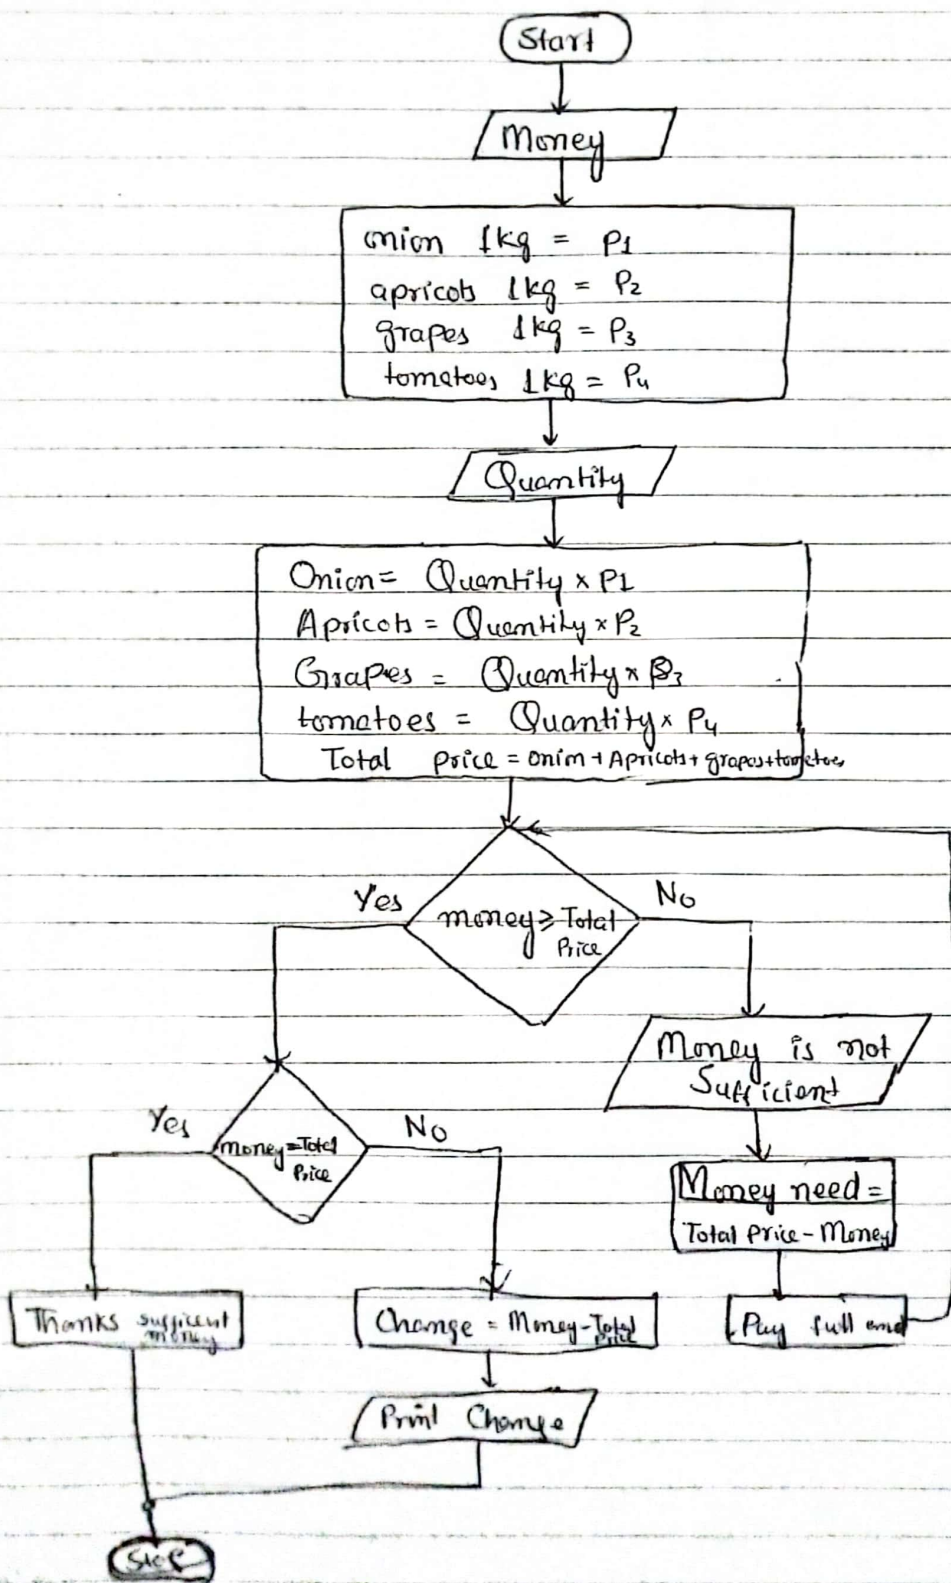 Start
Money
onion 1kg = P1
apricots 1kg = P2
grapes 1kg = P3
tomatoes 1kg = P4
Quantity
Onion = Quantity x P1
Apricots = Quantity x P2
Grapes = Quantity x P3
tomatoes = Quantity x P4
Total price = onion + Apricots + grapes + tomatoes
Yes
No
money ≥ Total
Price
Money is not
Sufficient
Yes
No
money = Total
Price
Money need =
Total Price - Money
Thanks sufficent
money
Change = Money - Total
Price
Pay full
Print Change
Stop